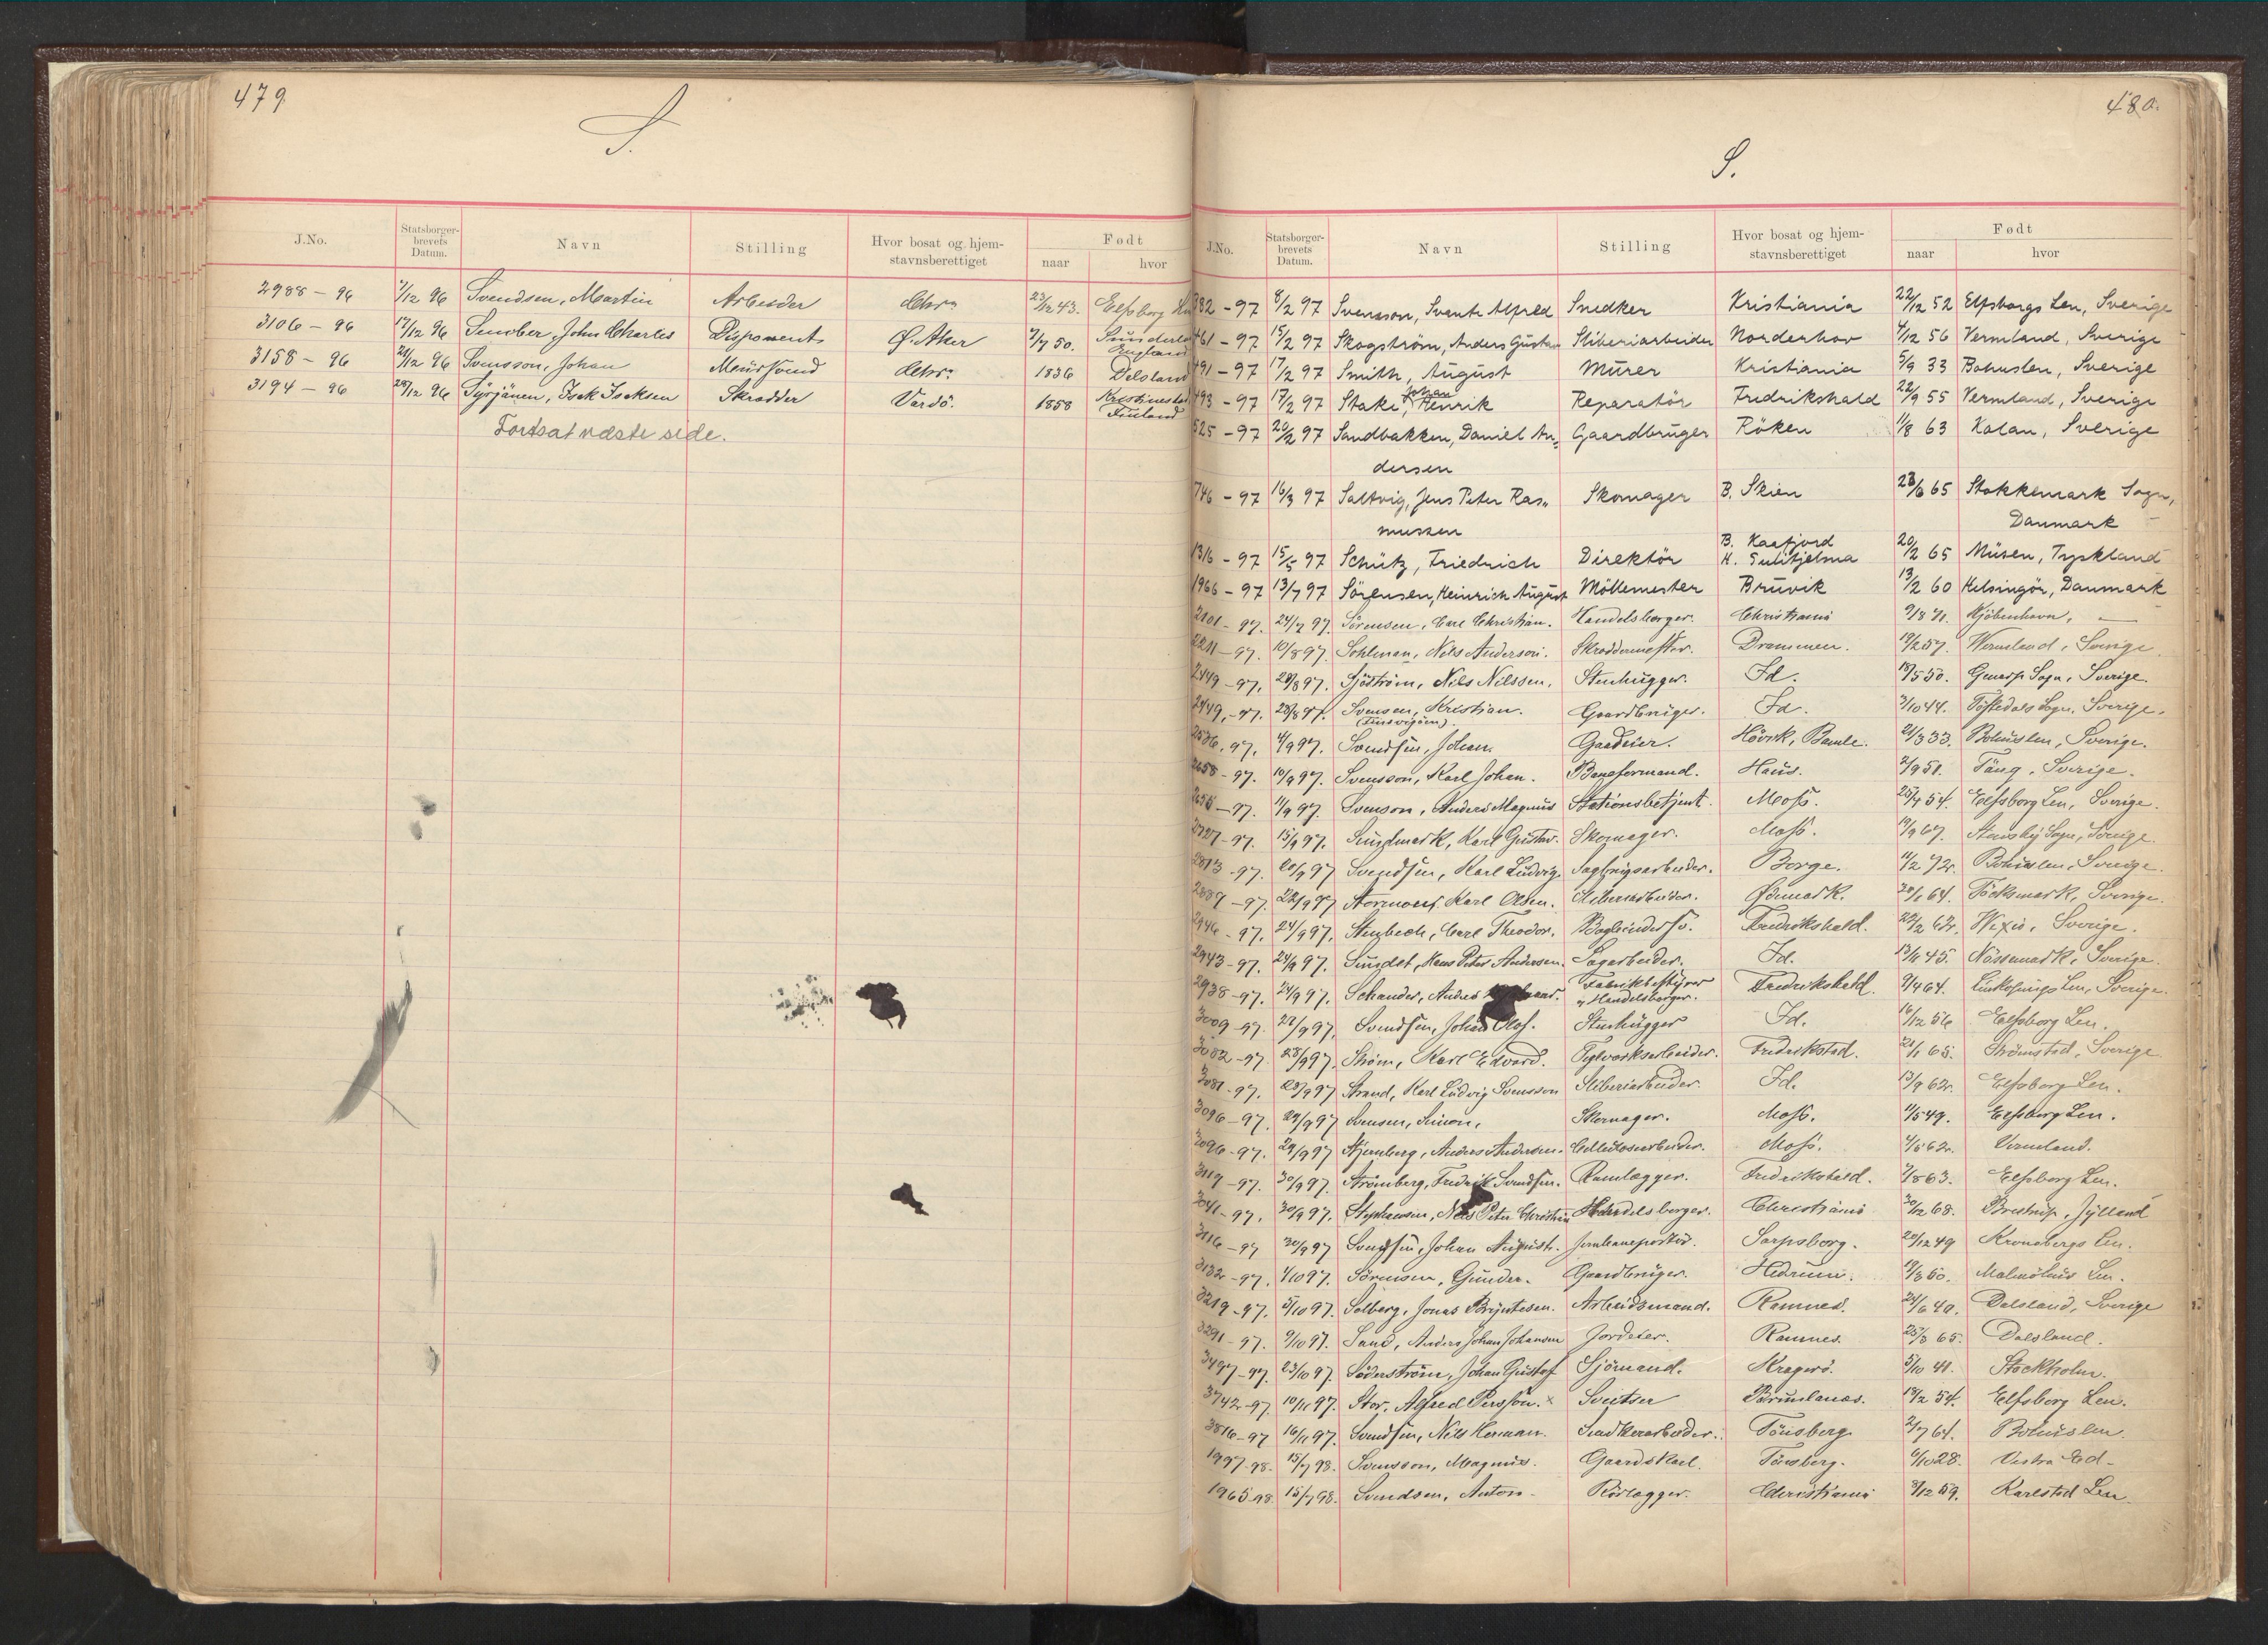 479
S.
J.No. Statsborger-brevets Datum. Navn Stilling Hvor bosat og hjem-stavnsberettiget Født naar hvor
2988 - 96 7/12 96 Svendsen, Martin Arbeider Chra 23/12 43. Elfsborg
3106 - 96 17/12 96 Smober, John Charles Disponent Ø. Aker 7/7 50. England
3158 - 96 21/12 96 Svensson, Johan Murersvend Chra 1836 Dalsland
3194 - 96 28/12 96 Syrjänen, Isak Isaksen Skrædder Vardö. 1858 Kristinestad Finland
Fortsat næste side.
480.
S.
J.No. Statsborger-brevets Datum. Navn Stilling Hvor bosat og hjem-stavnsberettiget Født naar hvor
382 - 97 8/2 97 Svensson, Svante Alfred Snedker Kristiania 22/12 52 Elfsborgs Len, Sverige
461 - 97 15/2 97 Skogström, Anders Gustav Sliberiarbeider Norderhov 4/12 56 Vermland, Sverige
491 - 97 17/2 97 Smith, August Murer Kristiania 5/9 33 Bohuslen, Sverige
493 - 97 17/2 97 Stake, Johan Henrik Reparatör Fredrikshald 22/9 55 Vermland, Sverige
525 - 97 20/2 97 Sandbakken, Daniel An- Gaardbruger Röken 11/8 63 Kalan, Sverige
dersen
746 - 97 16/3 97 Saltvig, Jens Peter Ras- Skomager B. Skien 28/6 65 Stokkemark Sogn,
mussen Danmark
1316 - 97 15/5 97 Schütz, Friedrich Direktör B. Kaafjord H. Sulitjelma 20/2 65 Müsen, Tyskland
1966 - 97 13/7 97 Sörensen, Heinrich August Möllemester Bruvik 13/2 60 Helsingör, Danmark
2101 - 97. 24/7 97. Sörensen, Carl Christian. Handelsborger. Christiania 9/8 71. Kjöbenhavn, —
2211 - 97. 10/8 97. Sohlman, Nils Anderson. Skræddermester. Drammen. 19/2 57. Wermland, Sverige.
2449 - 97. 28/8 97. Sjöström, Nils Nilssen. Stenhugger. Id. 18/5 50. Sogn, Sverige.
2449, - 97. 28/8 97. Svensen, Kristian. Gaardbruger. Id. 3/10 44. Töftedals Sogn, Sverige.
2536, 97. 4/9 97. Svendsen, Johan. Gaardeier. Hövik, Bamle. 21/3 33. Bohuslen, Sverige.
2658 - 97. 10/9 97. Svensson, Karl Johan. Baneformand. Haus. 2/9 51. Tång, Sverige.
2656 - 97. 11/9 97. Svenson, Anders Magnus Stationsbetjent. Moss. 25/4 54. Elfsborg Len, Sverige.
2727 - 97. 15/9 97. Sundmark, Karl Gustav. Skomager. Moss. 19/9 67. Sogn, Sverige.
2813 - 97. 20/9 97 Svendsen, Karl Ludvig. Sagbrugsarbeider. Borge. 11/2 72. Bohuslen, Sverige.
2889 - 97. 22/9 97 Karl Olsen. Sliberiarbeider. Ømark. 30/1 64. Töcksmark, Sverige.
2946 - 97. 24/9 97. Stenbeck, Carl Theodor. Bogbindersv. Fredrikshald. 22/2 62. Wexiö, Sverige.
2943 - 97. 24/9 97. Sundet, Hans Peter Andersen. Sagarbeider. Id. 13/6 45. Nössemark, Sverige.
2938 - 97. 24/9 97. Schander, Anders Fabrikbestyrer & Handelsborger. Fredrikshald. 9/4 64. Linköpings Len, Sverige.
3009 - 97. 28/9 97. Svendsen, Johan Olof. Stenhugger Id. 16/12 56 Elfsborg Len.
3082 - 97. 28/9 97. Ström, Karl Edvard. Teglverksarbeider. Fredrikstad. 21/1 65. Strömstad, Sverige.
3081 - 97. 28/9 97 Strand, Karl Ludvig Svensson Sliberiarbeider. Id. 13/9 62. Elfsborg Len.
3096 - 97. 29/9 97 Svensen, Simon. Skomager. Moss. 11/5 49. Elfsborg Len.
3096 - 97. 29/9 97 Stjernberg, Anders Andersen. Cellulosearbeider. Moss. 4/5 62. Vermland.
3119 - 97. 30/9 97. Strömberg, Fredrik Svendsen. Rørlægger. Fredrikshald. 7/8 63. Elfsborg Len.
3041 - 97. 30/9 97. Stephansen, Niels Peter Christian Handelsborger. Christiania 30/12 68. Jylland
3116 - 97 30/9 97 Svendsen, Johan August. Jernbaneportör. Sarpsborg. 20/12 49 Kronobergs Len.
3132 - 97. 1/10 97. Sörensen, Gunder. Gaardbruger. Hedrum. 19/3 50. Malmöhus Len.
3219 - 97. 5/10 97. Solberg, Jonas Bryntesen. Arbeidsmand. Ramnes. 24/6 40. Dalsland, Sverige
3291 - 97. 9/10 97. Sand, Anders Johan Johansen Jordeier. Ramnes. 25/3 65. Dalsland.
3497 - 97. 23/10 97. Söderström, Johan Gustaf Sjömand. Kragerö. 5/10 41. Stockholm.
3742 - 97. 10/11 97. Stor, Alfred Persson. x Sveitser Brunlanæs. 18/2 54. Elfsborg Len.
3816 - 97 16/11 97. Svendsen, Nils Herman. Snedkerarbeider. Tönsberg 2/7 64. Bohuslen.
1997 - 98. 15/7 98. Svensson, Magnus. Gaardskarl. Tönsberg. 6/10 28. Vestra Ed -
1965 98. 15/7 98. Svendsen, Anton - Rörlægger. Christiania 8/12 59. Karlstad Len.